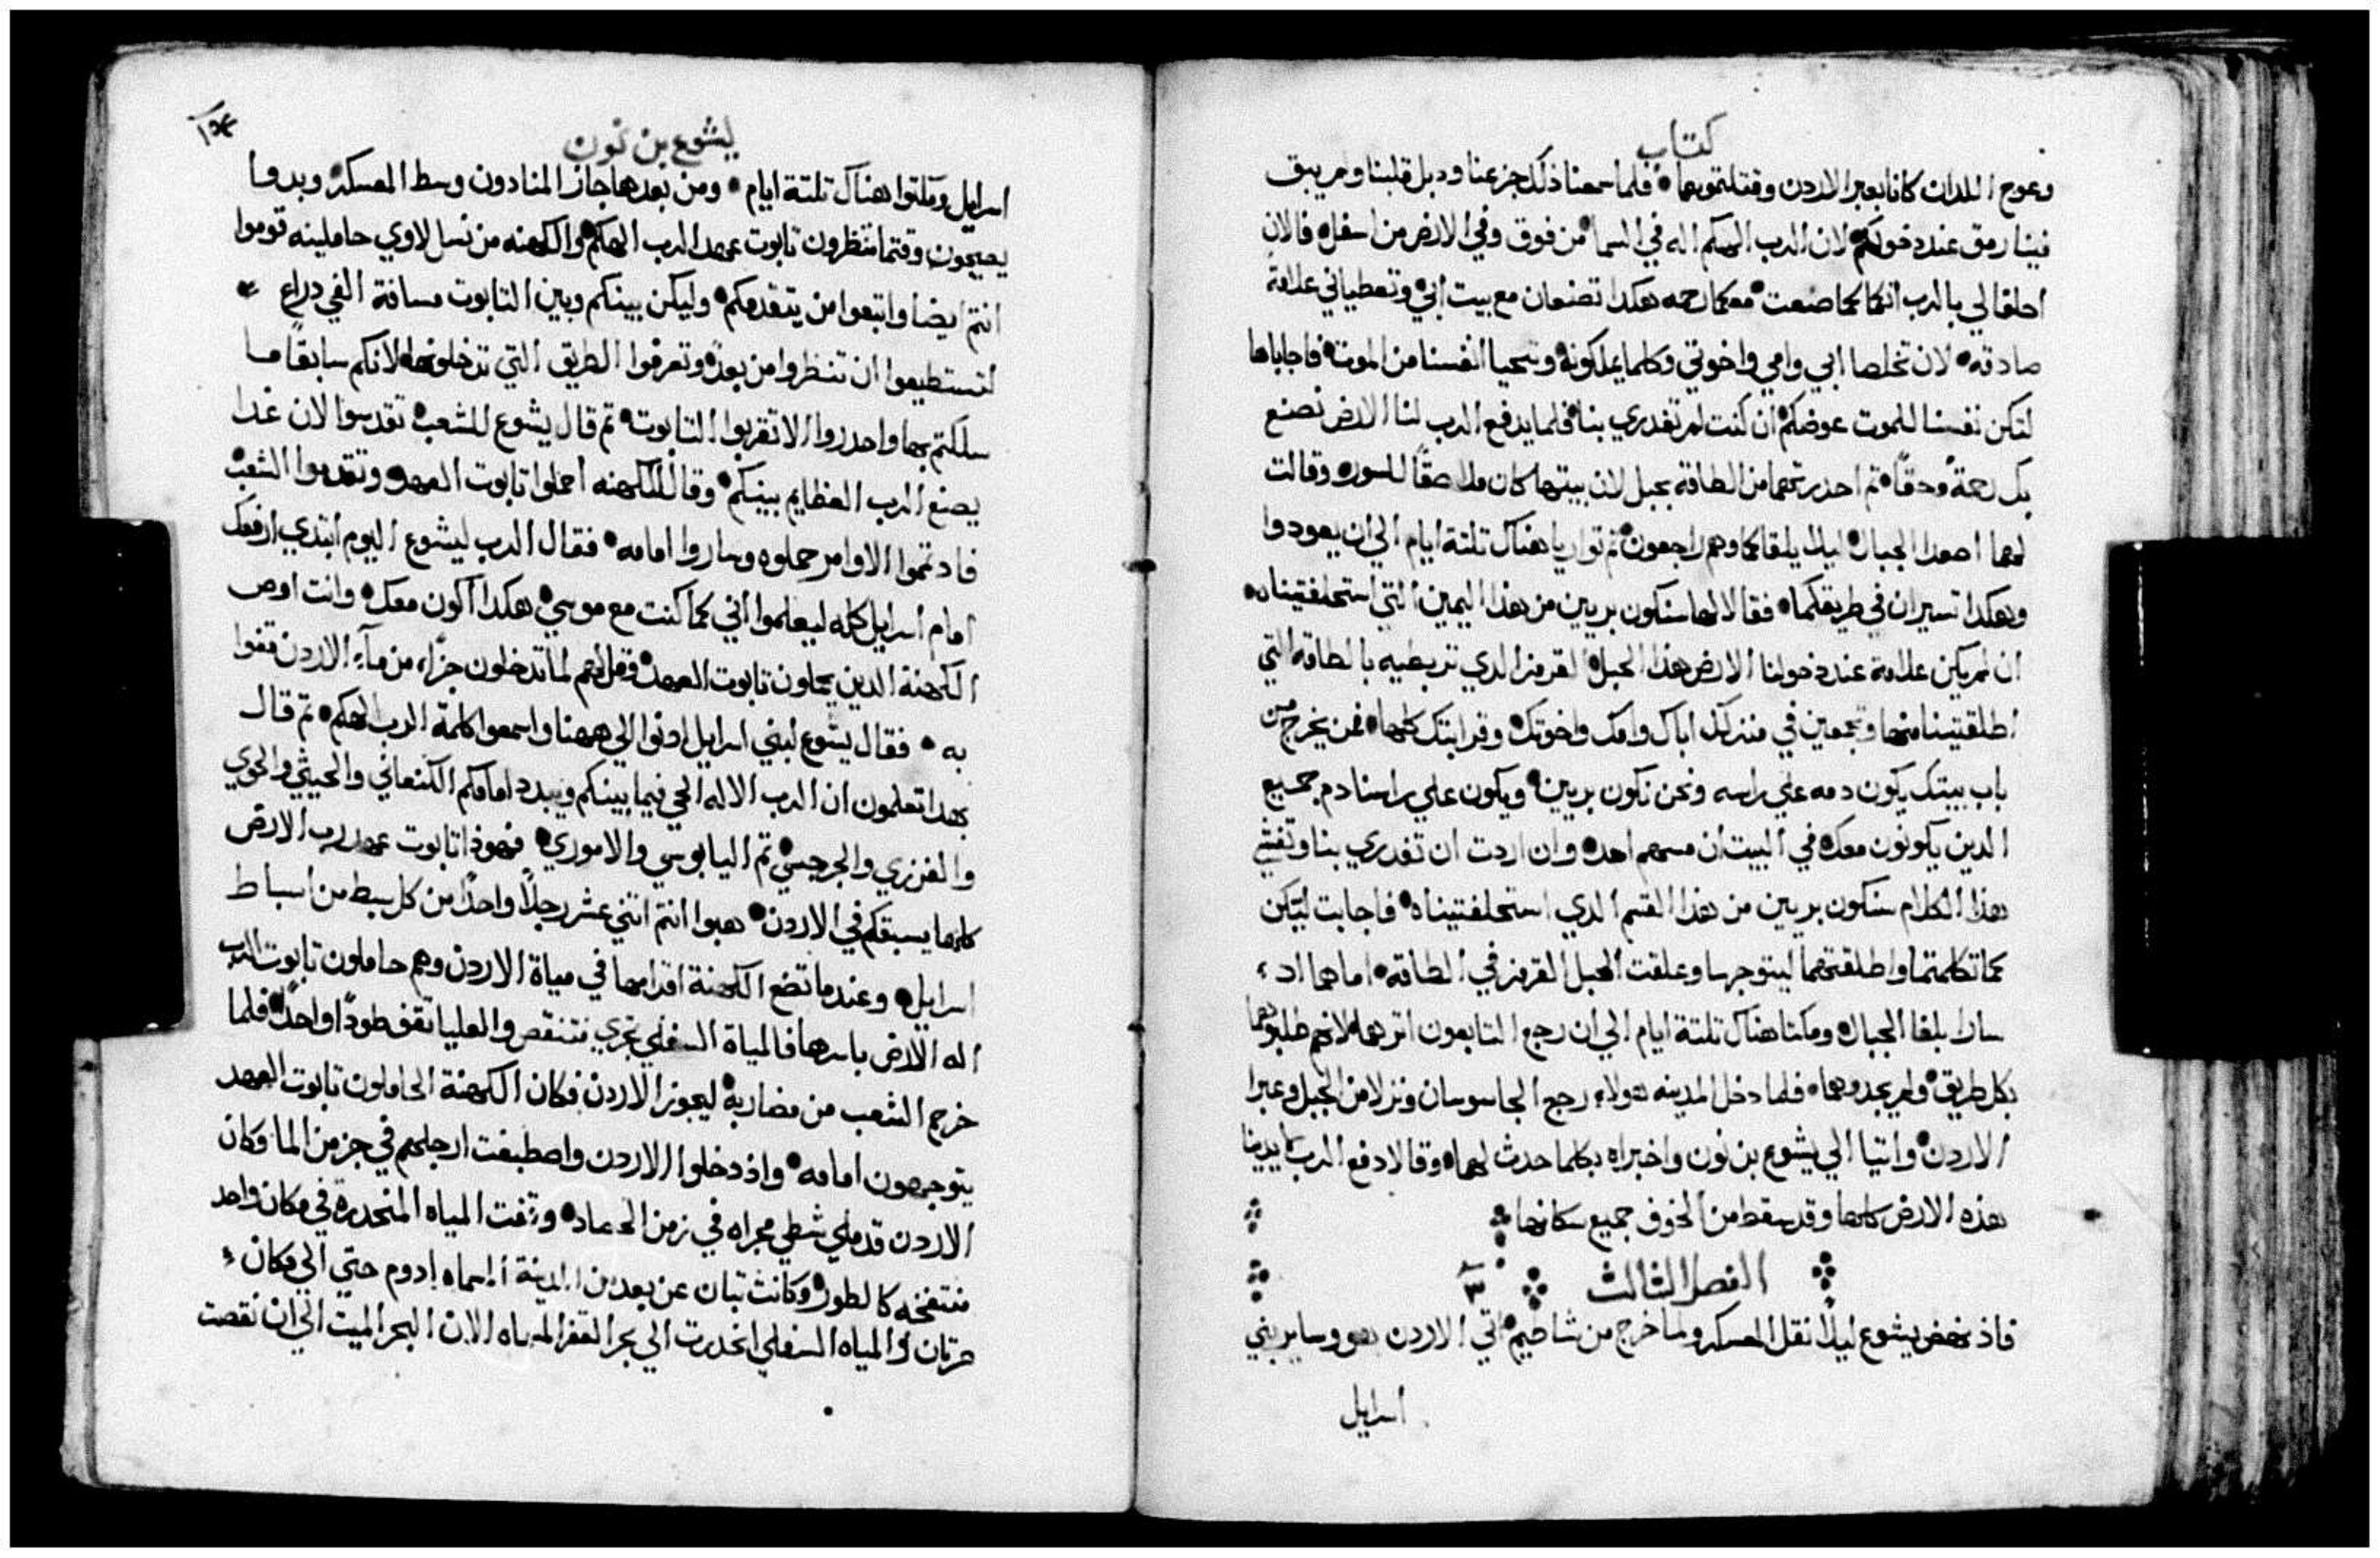 كتاب
وعوج اللدان كانا بعبر الاردن وقتلتموهما فلما سمعنا ذلك جزعنا ودبل قلبنا ولم يبق
فينا رمق عند دخولكم لان الرب الهكم اله في السما من فوق وفي الارض من اسفل فالان
احلفا لي بالرب انكما كما صنعت معكما رحمه هكدا تصنعان مع بيت ابي وتعطياني علامة
صادقه لان تخلصا ابي وامي واخوتي وكلما يملكونه وتنحيا انفسنا من الموت فاجاباها
لتكن نفسنا للموت عوضكم ان كنت لم تغدري بنا فلما يدفع الرب لنا الارض نصنع
بك رحمة وحقا تم احدرتهما من الطاقه بحبل لان بيتها كان ملاصقا للسور وقالت
لهما اصعدا الجبال ليلا يلقاكما وهم راجعون تم تواريا هناك تلتة ايام الي ان يعودوا
وهكدا تسيران في طريقكما فقالا لها سنكون بريين من هذا اليمين التي استحلفتيناه
ان لم يكن علامة عند دخولنا الارض هذا الحبل القرمز الدي تربطيه بالطاقه التي
اطلقتينا منها وتجمعين في منزلك اباك وامك واخوتك وقرابتك كلها فمن يخرج من
باب بيتك يكون دمه علي راسه ونحن نكون بريين ويكون علي راسنا دم جميع
الدين يكونون معك في البيت ان مسهم احد وان اردت ان تغدري بنا وتفشي
هذا الكلام سنكون بريين من هذا القسم الدي استحلفتيناه فاجابت ليكن
كما تكلمتما واطلقتهما ليتوجها وعلقت الحبل القرمز في الطاقه اما هما اد
سارا بلغا الجبال ومكتا هناك تلتة ايام الي ان رجع التابعون اترهما لانهم طلبوهما
بكل طريق ولم يجدوهما فلما دخل المدينه هولاء رجع الجاسوسان ونزلا من الجبل وعبرا
الاردن واتيا الي يشوع بن نون واخبراه بكلما حدث لهما وقالا دفع الرب بايدينا
هذه الارض كلها وقد سقط من الخوف جميع سكانها
الفصل الثالث ٣
فاذ نهض يشوع ليلا نقل العسكر ولما خرج من شاطيم اتي الاردن هو وساير بني
اسرايل
يشوع بن نون
اسرايل ومكتوا هناك تلتة ايام ومن بعدها جاز المنادون وسط العسكر وبدوا
يصيحون وقتما تنظرون تابوت عهد الرب الهكم والكهنه من نسل لاوي حاملينه قوموا
انتم ايضا واتبعوا من يتقدمكم وليكن بينكم وبين التابوت مسافة الفي دراع
لتستطيعوا ان تنظروا من بعد وتعرفوا الطريق التي تدخلونها لانكم سابقا ما
سلكتم بها واحدروا الا تقربوا التابوت تم قال يشوع للشعب تقدسوا لان غدا
يصنع الرب العظايم بينكم وقال للكهنه احملوا تابوت العهد وتقدموا الشعب
فاد تمموا الاوامر حملوه وساروا امامه فقال الرب ليشوع اليوم ابتدي ارفعك
امام اسرايل كله ليعلموا اني كما كنت مع موسي هكدا اكون معك وانت اوص
الكهنة الدين يحملون تابوت العهد وقل لهم لما تدخلون جزاء من ماء الاردن قفوا
به فقال يشوع لبني اسرايل ادنوا الي ههنا واسمعوا كلمة الرب الهكم تم قال
بهدا تعلمون ان الرب الاله الحي فيما بينكم ويبدد امامكم الكنعاني والحيثي والحوي
والفرزي والجرجسي تم اليابوسي والاموري فهوذا تابوت عهد رب الارض
كلها يسبقكم في الاردن هبوا انتم اتني عشر رجلا واحدا من كل سبط من اسباط
اسرايل وعندما تضع الكهنة اقدامها في مياة الاردن وهم حاملون تابوت الرب
اله الارض باسرها فالمياة السفلي تجري فتنقص والعليا تقف طودا واحدا فلما
خرج الشعب من مضاربه ليجوز الاردن فكان الكهنة الحاملون تابوت العهد
يتوجهون امامه واذ دخلوا الاردن واصطبغت ارجلهم في جز من الما وكان
الاردن قد ملي شطي مجراه في زمن الحصاد وقفت المياه المنحدرة في مكان واحد
منتفخه كالطور وكانت تبان عن بعد من المدينة المسماه ادوم حتي الي مكان
صرتان والمياه السفلي انحدرت الي بحر القفر المسماه الان البحر الميت الي ان نقصت